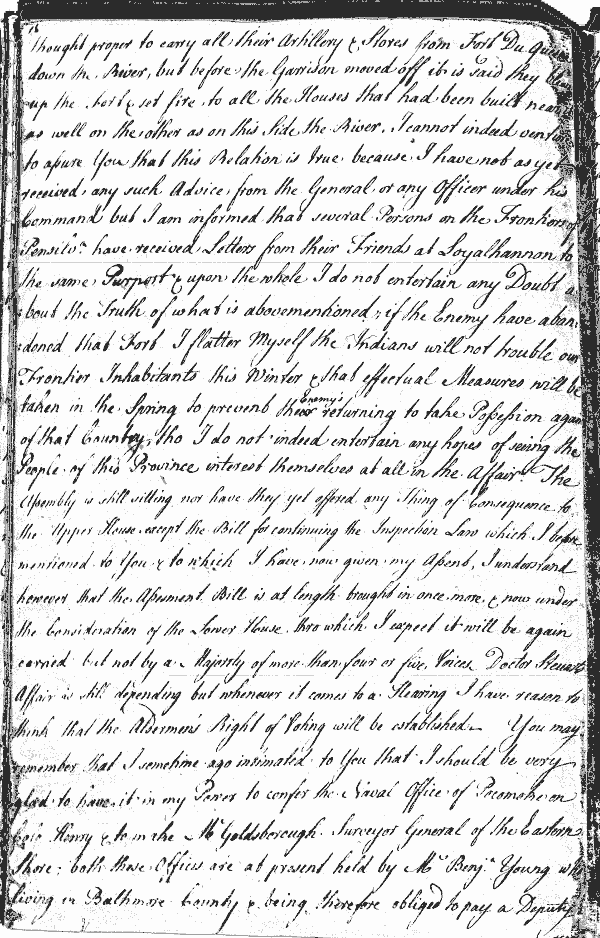 thought proper to carry all their Artillery & Stores from Fort Du Quesne
down the River, but before the Garrison moved off it is said they blew
up the Fort & set fire to all the Houses that had been built near it
as well on the other as on this Side the River, I cannot indeed venture
to assure You that this Relation is true because I have not as yet
received any such Advice from the General or any Officer under his
Command but I am informed that several Persons on the Frontiers of
Pensilva. have received Letters from their Friends at Loyalhannon to
the same Purport & upon the whole I do not entertain any Doubt a
:bout the Truth of what is abovementioned; if the Enemy have aban:
:doned that Fort I flatter Myself the Indians will not trouble our
Frontier Inhabitants this Winter & that effectual Measures will be
taken in the Spring to prevent the Enemy's returning to take Possession again
of that Country, tho I do not indeed entertain any hopes of seeing the
People of this Province interest themselves at all in the Affair. The
Assembly is still sitting nor have they yet offered any Thing of Consequence to
the Upper House except the Bill for continuing the Inspection Law which I before
mentioned to You & to which I have now given my Assent, I understand
however that the Assesment Bill is at length brought in once more & now under
the Consideration of the Lower House thro which I expect it will be again
carried but not by a Majority of more than four or five Voices. Doctor Steuart's
Affair is still depending but whenever it comes to a Hearing I have reason to
think that the Aldermen's Right of Voting will be established. You may
remember that I sometime ago intimated to You that I should be very
glad to have it in my Power to confer the Naval Office of Pocomoke on
Colo Henry & to make Mr Goldsborough Surveyor General of the Eastern
Shore; both these Offices are at present held by Mr Benja. Young who
living in Balthmore County & being therefore obliged to pay a Deputy